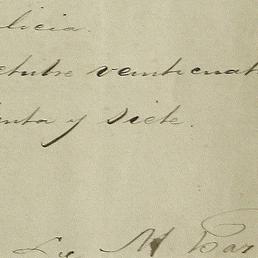 licia.
ctubre veinticuat
enta y siete.
M Bar